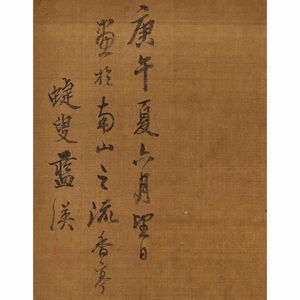 庚午夏六月望日
画於南山之流香亭
蜨叟藍瑛